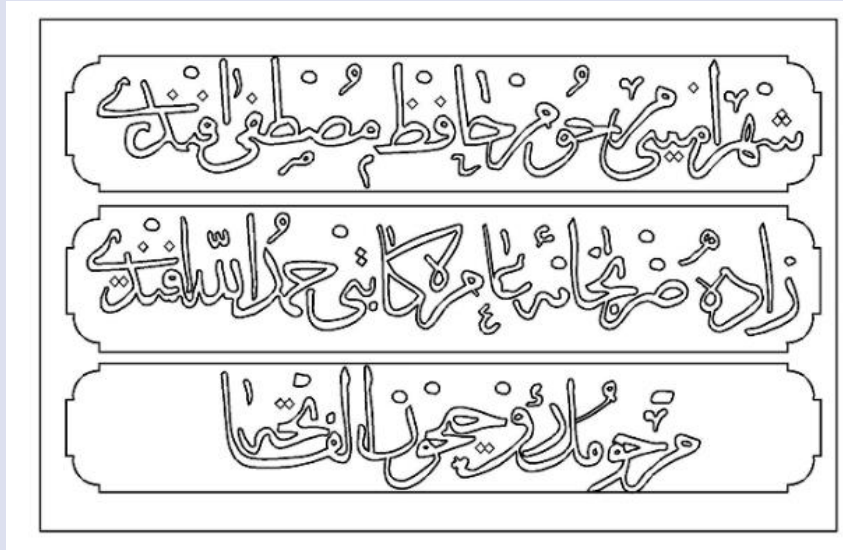 شهر امینی مرحوم حافظ مصطفی افندی
زاده ضربخانه عامره کاتبی حمد الله افندی
مرحومدر روحیچون الفاتحه